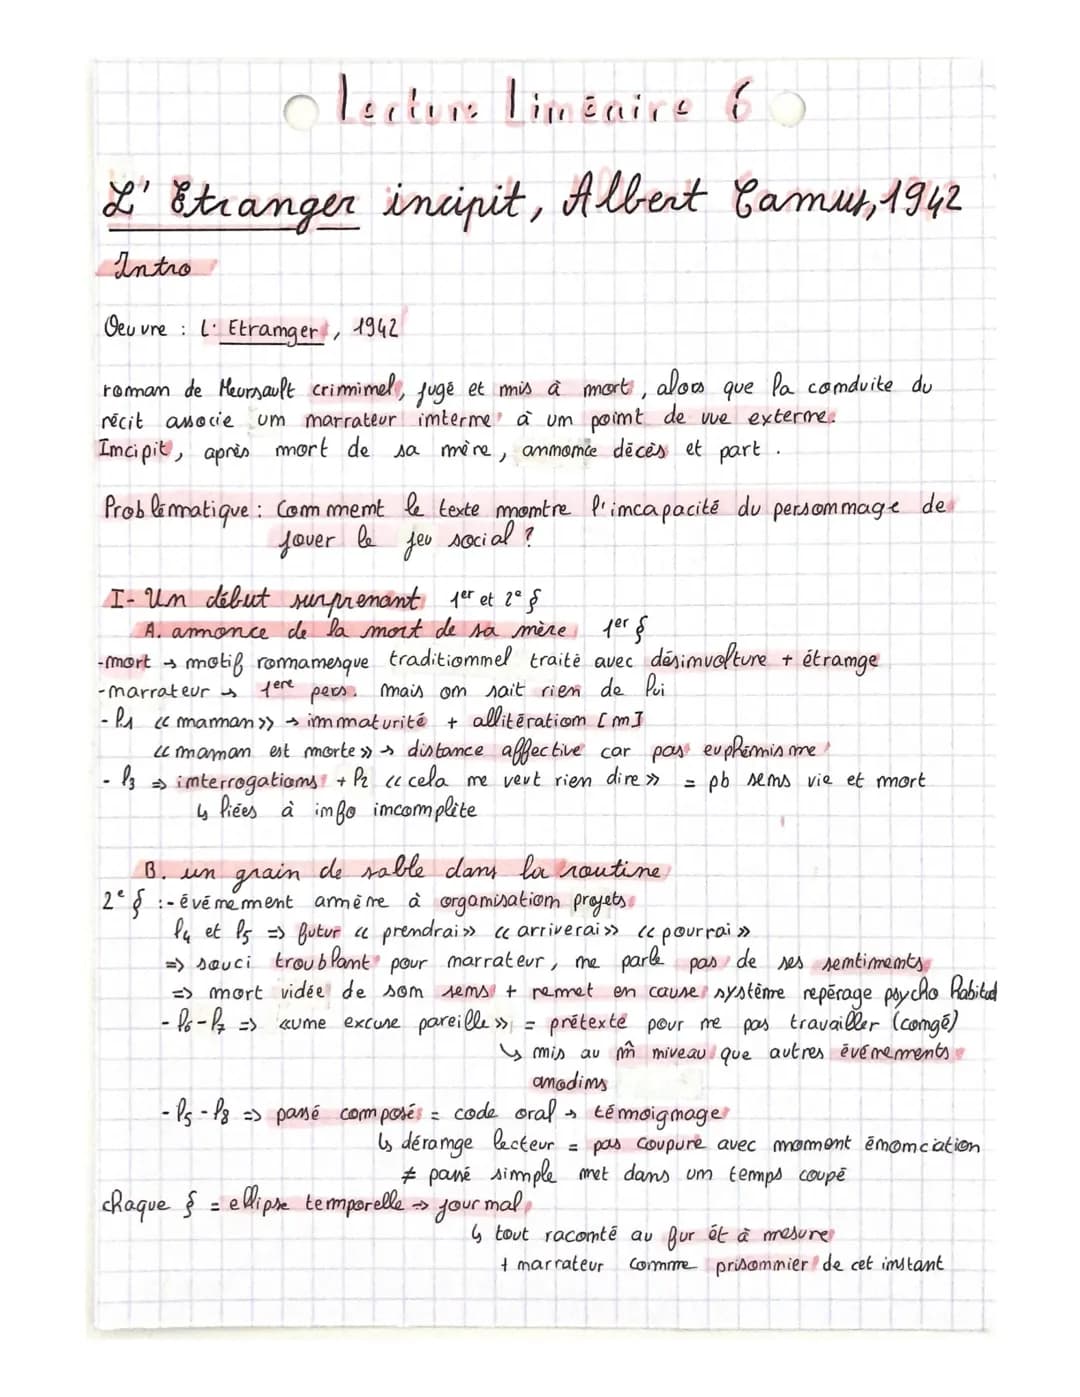 Lecture Linéaire 6
L' Etranger incipit, Albert Camus, 1942
Intro
Oeuvre : L' Etranger, 1942
roman de Meursault criminel, jugé et mis à mort, alors que la conduite du
récit associe un narrateur interne à un point de vue externe.
Incipit, après mort de sa mère, annonce décès et part.
Problématique : Comment le texte montre l'incapacité du personnage de
jouer le jeu social ?
I- Un début surprenant 1er et 2e §
A. annonce de la mort de sa mère 1er §
-mort → motif romanesque traditionnel traité avec désinvolture + étrange
-narrateur → 1ere pers. mais on sait rien de lui
- l1 << maman >> → immaturité + allitération [m]
<< maman est morte >> → distance affective car pas euphémisme
- l3 => interrogations + l2 << cela ne veut rien dire >> = pb sens vie et mort
↳ liées à info incomplète
B. un grain de sable dans la routine
2e § : - événement amène à organisation projets
l4 et l5 => futur << prendrai >> << arriverai >> << pourrai >>
=> souci troublant pour narrateur, ne parle pas de ses sentiments
=> mort vidée de son sens + remet en cause système repérage psycho habituel
- l6 - l7 => << une excuse pareille >> = prétexte pour ne pas travailler (congé)
↳ mis au m̂ niveau que autres événements
anodins
- l5 - l8 => passé composés = code oral → témoignage
↳ dérange lecteur = pas coupure avec moment énonciation
≠ passé simple met dans un temps coupé
chaque § = ellipse temporelle => journal
↳ tout raconté au fur et à mesure
+ narrateur comme prisonnier de cet instant